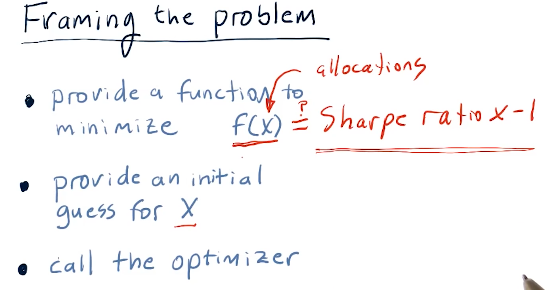 Framing the problem
allocations
• provide a function to
minimize f(X) ≟ Sharpe ratio x -1
• provide an initial
guess for X
• call the optimizer